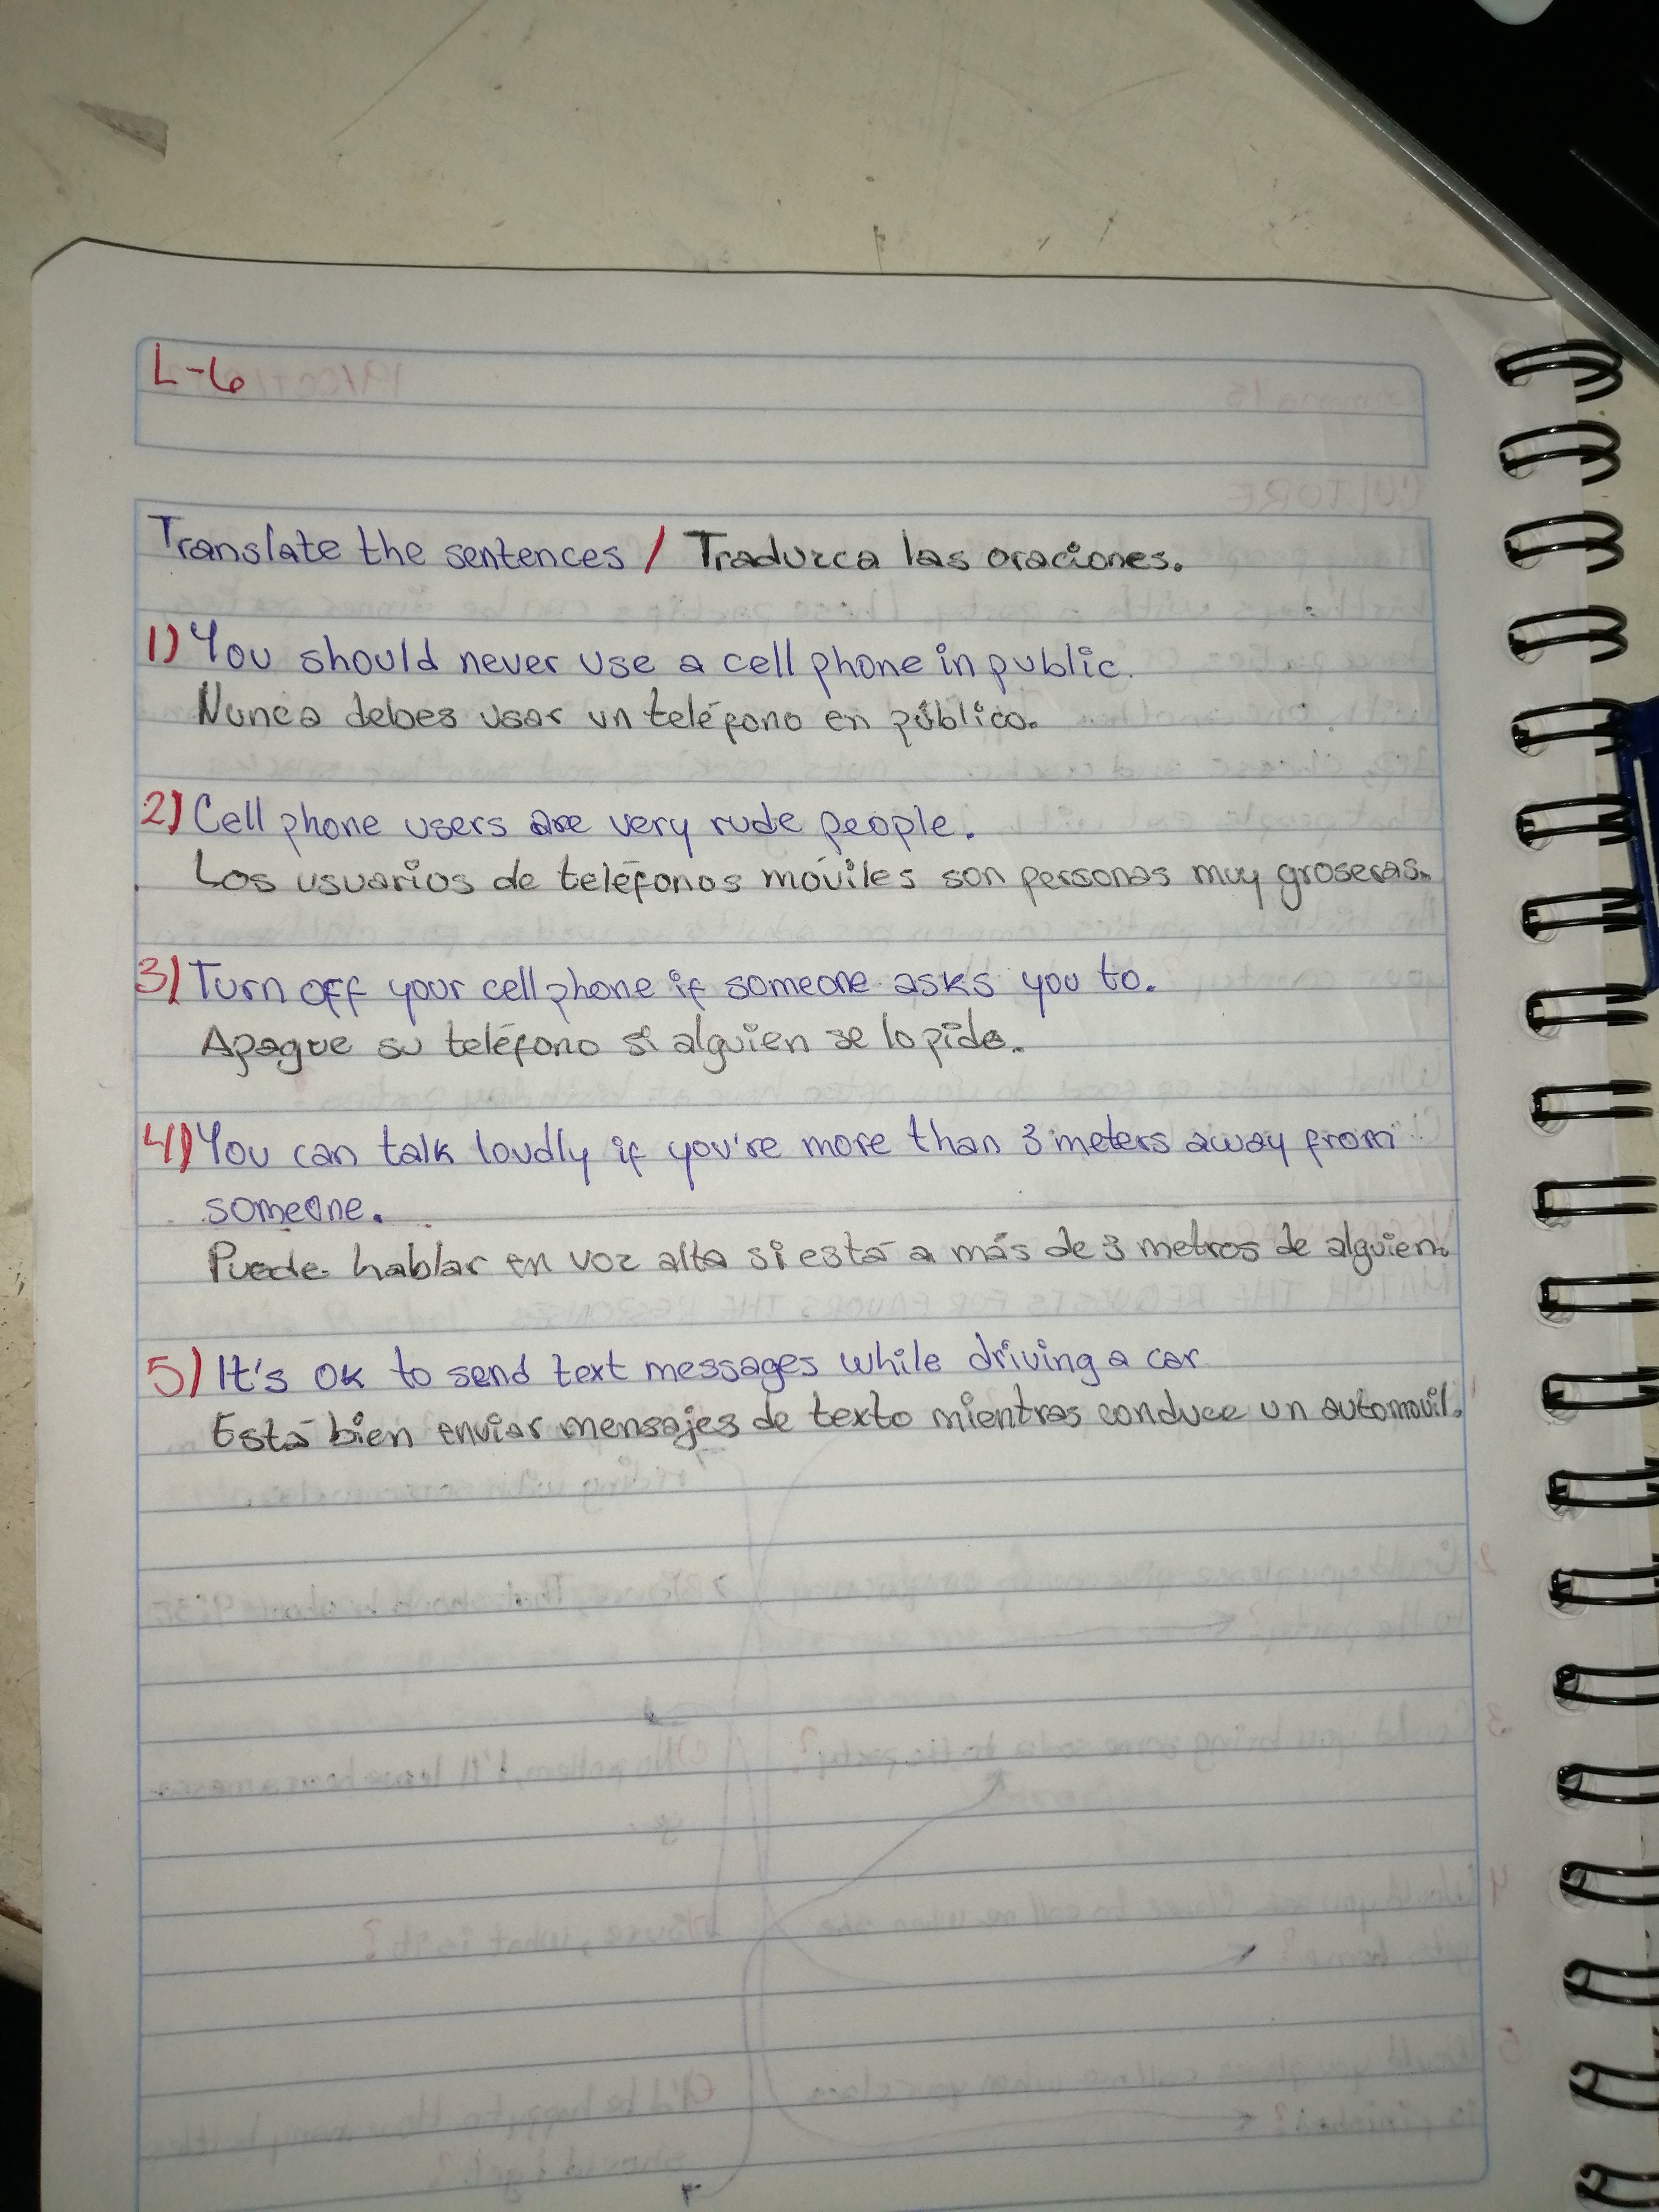 L-6
Translate the sentences / Traduzca las oraciones.
1) You should never use a cell phone in public.
Nunca debes usar un teléfono en público.
2) Cell phone users are very rude people.
Los usuarios de teléfonos móviles son personas muy groseras.
3) Turn off your cell phone if someone asks you to.
Apague su teléfono si alguien se lo pide.
4) You can talk loudly if you're more than 3 meters away from
someone.
Puede hablar en voz alta si está a más de 3 metros de alguien.
5) It's ok to send text messages while driving a car
Está bien enviar mensajes de texto mientras conduce un automovil.